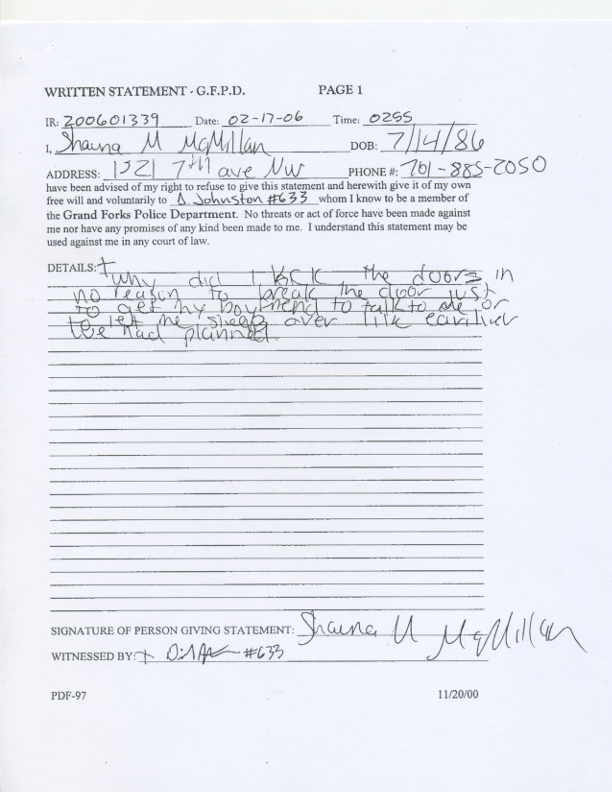 WRITTEN STATEMENT - G.F.P.D. PAGE 1
IR: 200601339 Date: 02-17-06 Time: 0255
I, Shauna M McMillan DOB: 7/14/86
ADDRESS: 1521 7th ave NW PHONE #: 701-885-2050
have been advised of my right to refuse to give this statement and herewith give it of my own
free will and voluntarily to D. Johnston #633 whom I know to be a member of
the Grand Forks Police Department. No threats or act of force have been made against
me nor have any promises of any kind been made to me. I understand this statement may be
used against me in any court of law.
DETAILS: why did I kick the doors in
no reason to break the door just
to get my boyfriend to talk to me or
to let me sleep over like earilier
we had planned.
SIGNATURE OF PERSON GIVING STATEMENT: Shauna M McMillan
WITNESSED BY: #633
PDF-97 11/20/00